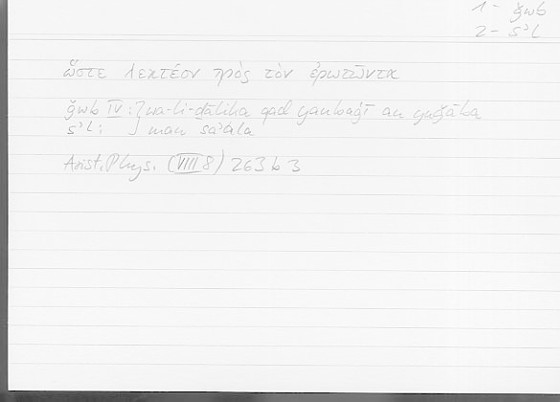 1 - ǧwb
2 - sʾl
ὥστε λεκτέον πρὸς τὸν ἐρωτῶντα
ǧwb IV : } wa-li-ḏālika qad yanbaġī an yuǧāba
sʾl : } man saʾala
Arist. Phys. (VIII 8) 263 b 3